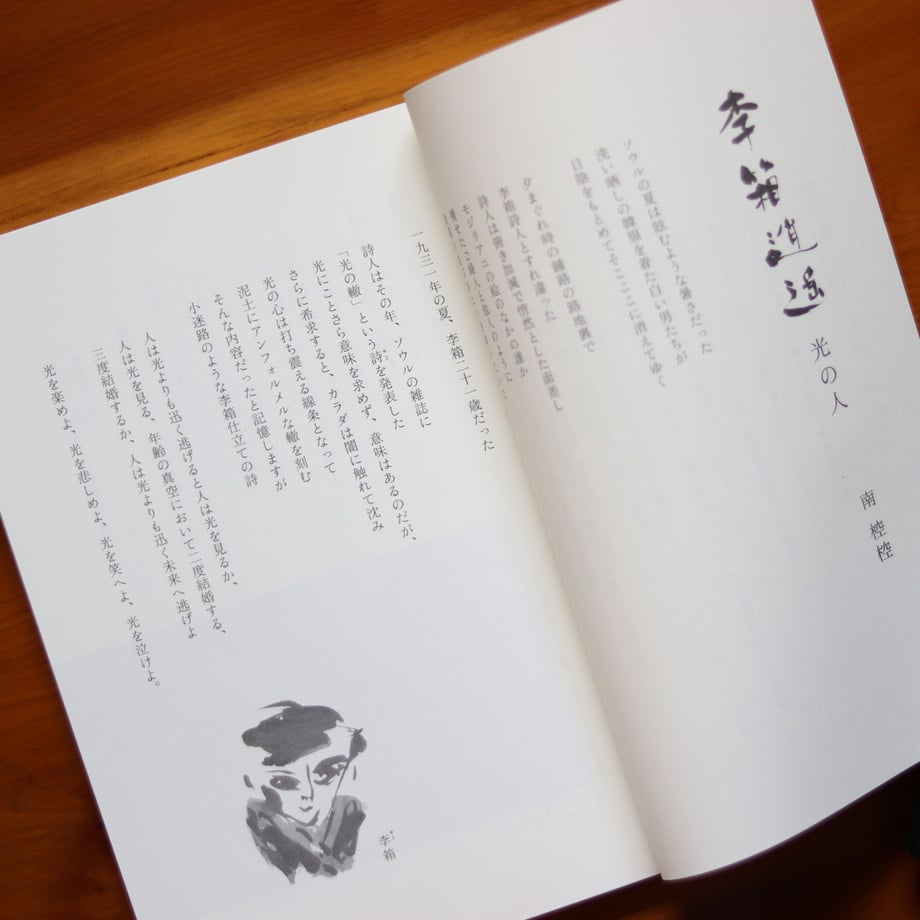 李箱逍遥
光の人
南 椌椌
ソウルの夏は眩むような暑さだった
洗い晒しの韓服を着た白い男たちが
日陰をもとめてそこここに消えてゆく
夕まぐれ時の鍾路の路地裏で
李箱詩人とすれ違った
詩人は俯き加減で悄然とした面差し
モジリアニの絵のなかの誰か
一九三一年の夏、李箱二十一歳だった
詩人はその年、ソウルの雑誌に
「光の轍」という詩を発表した
光にことさら意味を求めず、意味はあるのだが、
さらに希求すると、カラダは闇に触れて沈み
光の心は打ち震える線条となって
泥土にアンフォルメルな轍を刻む
そんな内容だったと記憶しますが
小迷路のような李箱仕立ての詩
人は光よりも迅く逃げると人は光を見るか、
人は光を見る、年齢の真空において二度結婚する、
三度結婚するか、人は光よりも迅く未来へ逃げよ
光を楽めよ、光を悲しめよ、光を笑へよ、光を泣けよ。
李箱